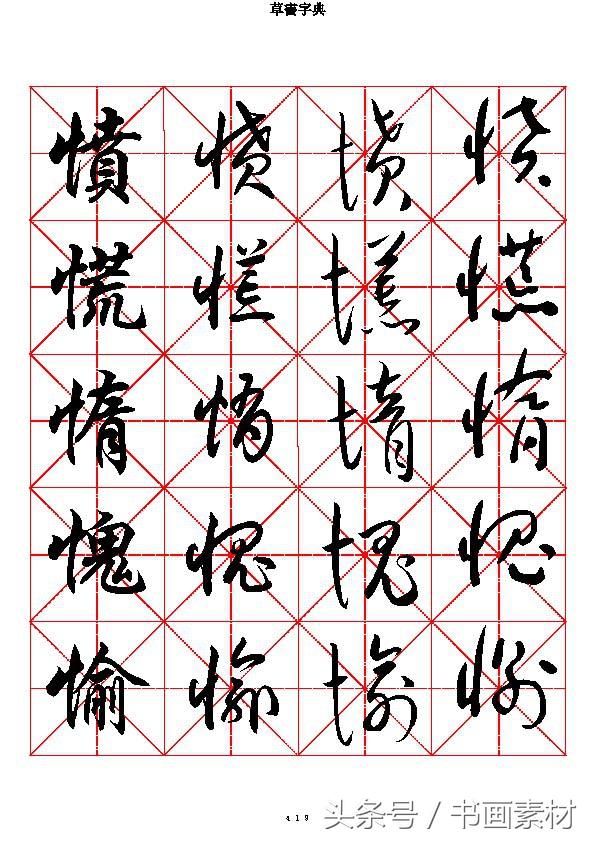 草書字典
憤 憤 憤 憤
慌 慌 慌 慌
惰 惰 惰 惰
愧 愧 愧 愧
愉 愉 愉 愉
419
头条号 / 书画素材